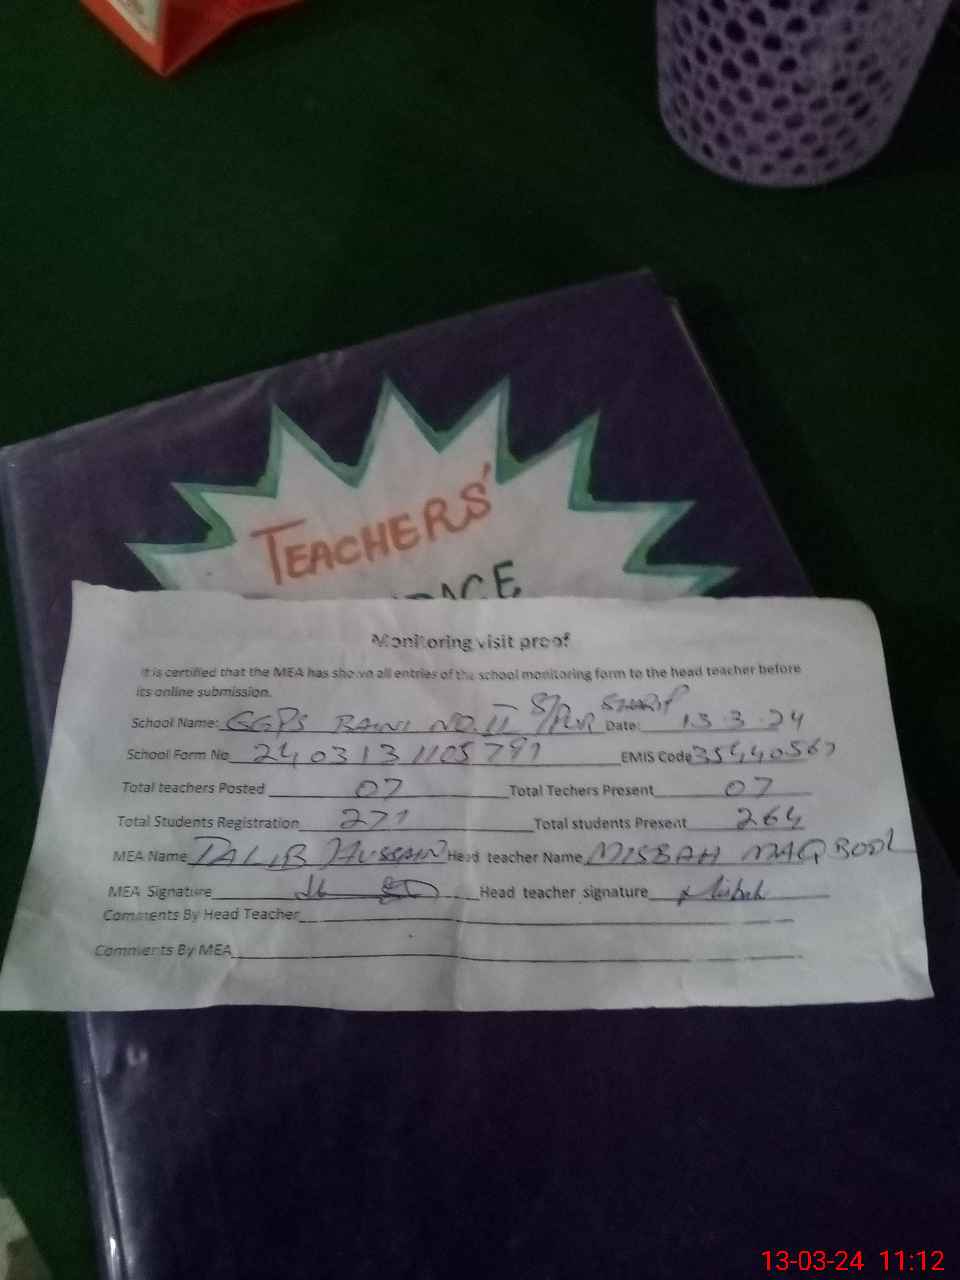 TEACHERS'
Monitoring visit proof
It is certified that the MEA has shown all entries of the school monitoring form to the head teacher before
its online submission.
School Name: GGPS RANI NO. II S/PUR SHARIF Date: 13.3.24
School Form No 2403131105791 EMIS Code 35440567
Total teachers Posted 07 Total Techers Present 07
Total Students Registration 271 Total students Present 264
MEA Name TALIB HUSSAIN Head teacher Name MISBAH MAQBOOL
MEA Signature Head teacher signature Misbah
Comments By Head Teacher
Comments By MEA
13-03-24 11:12